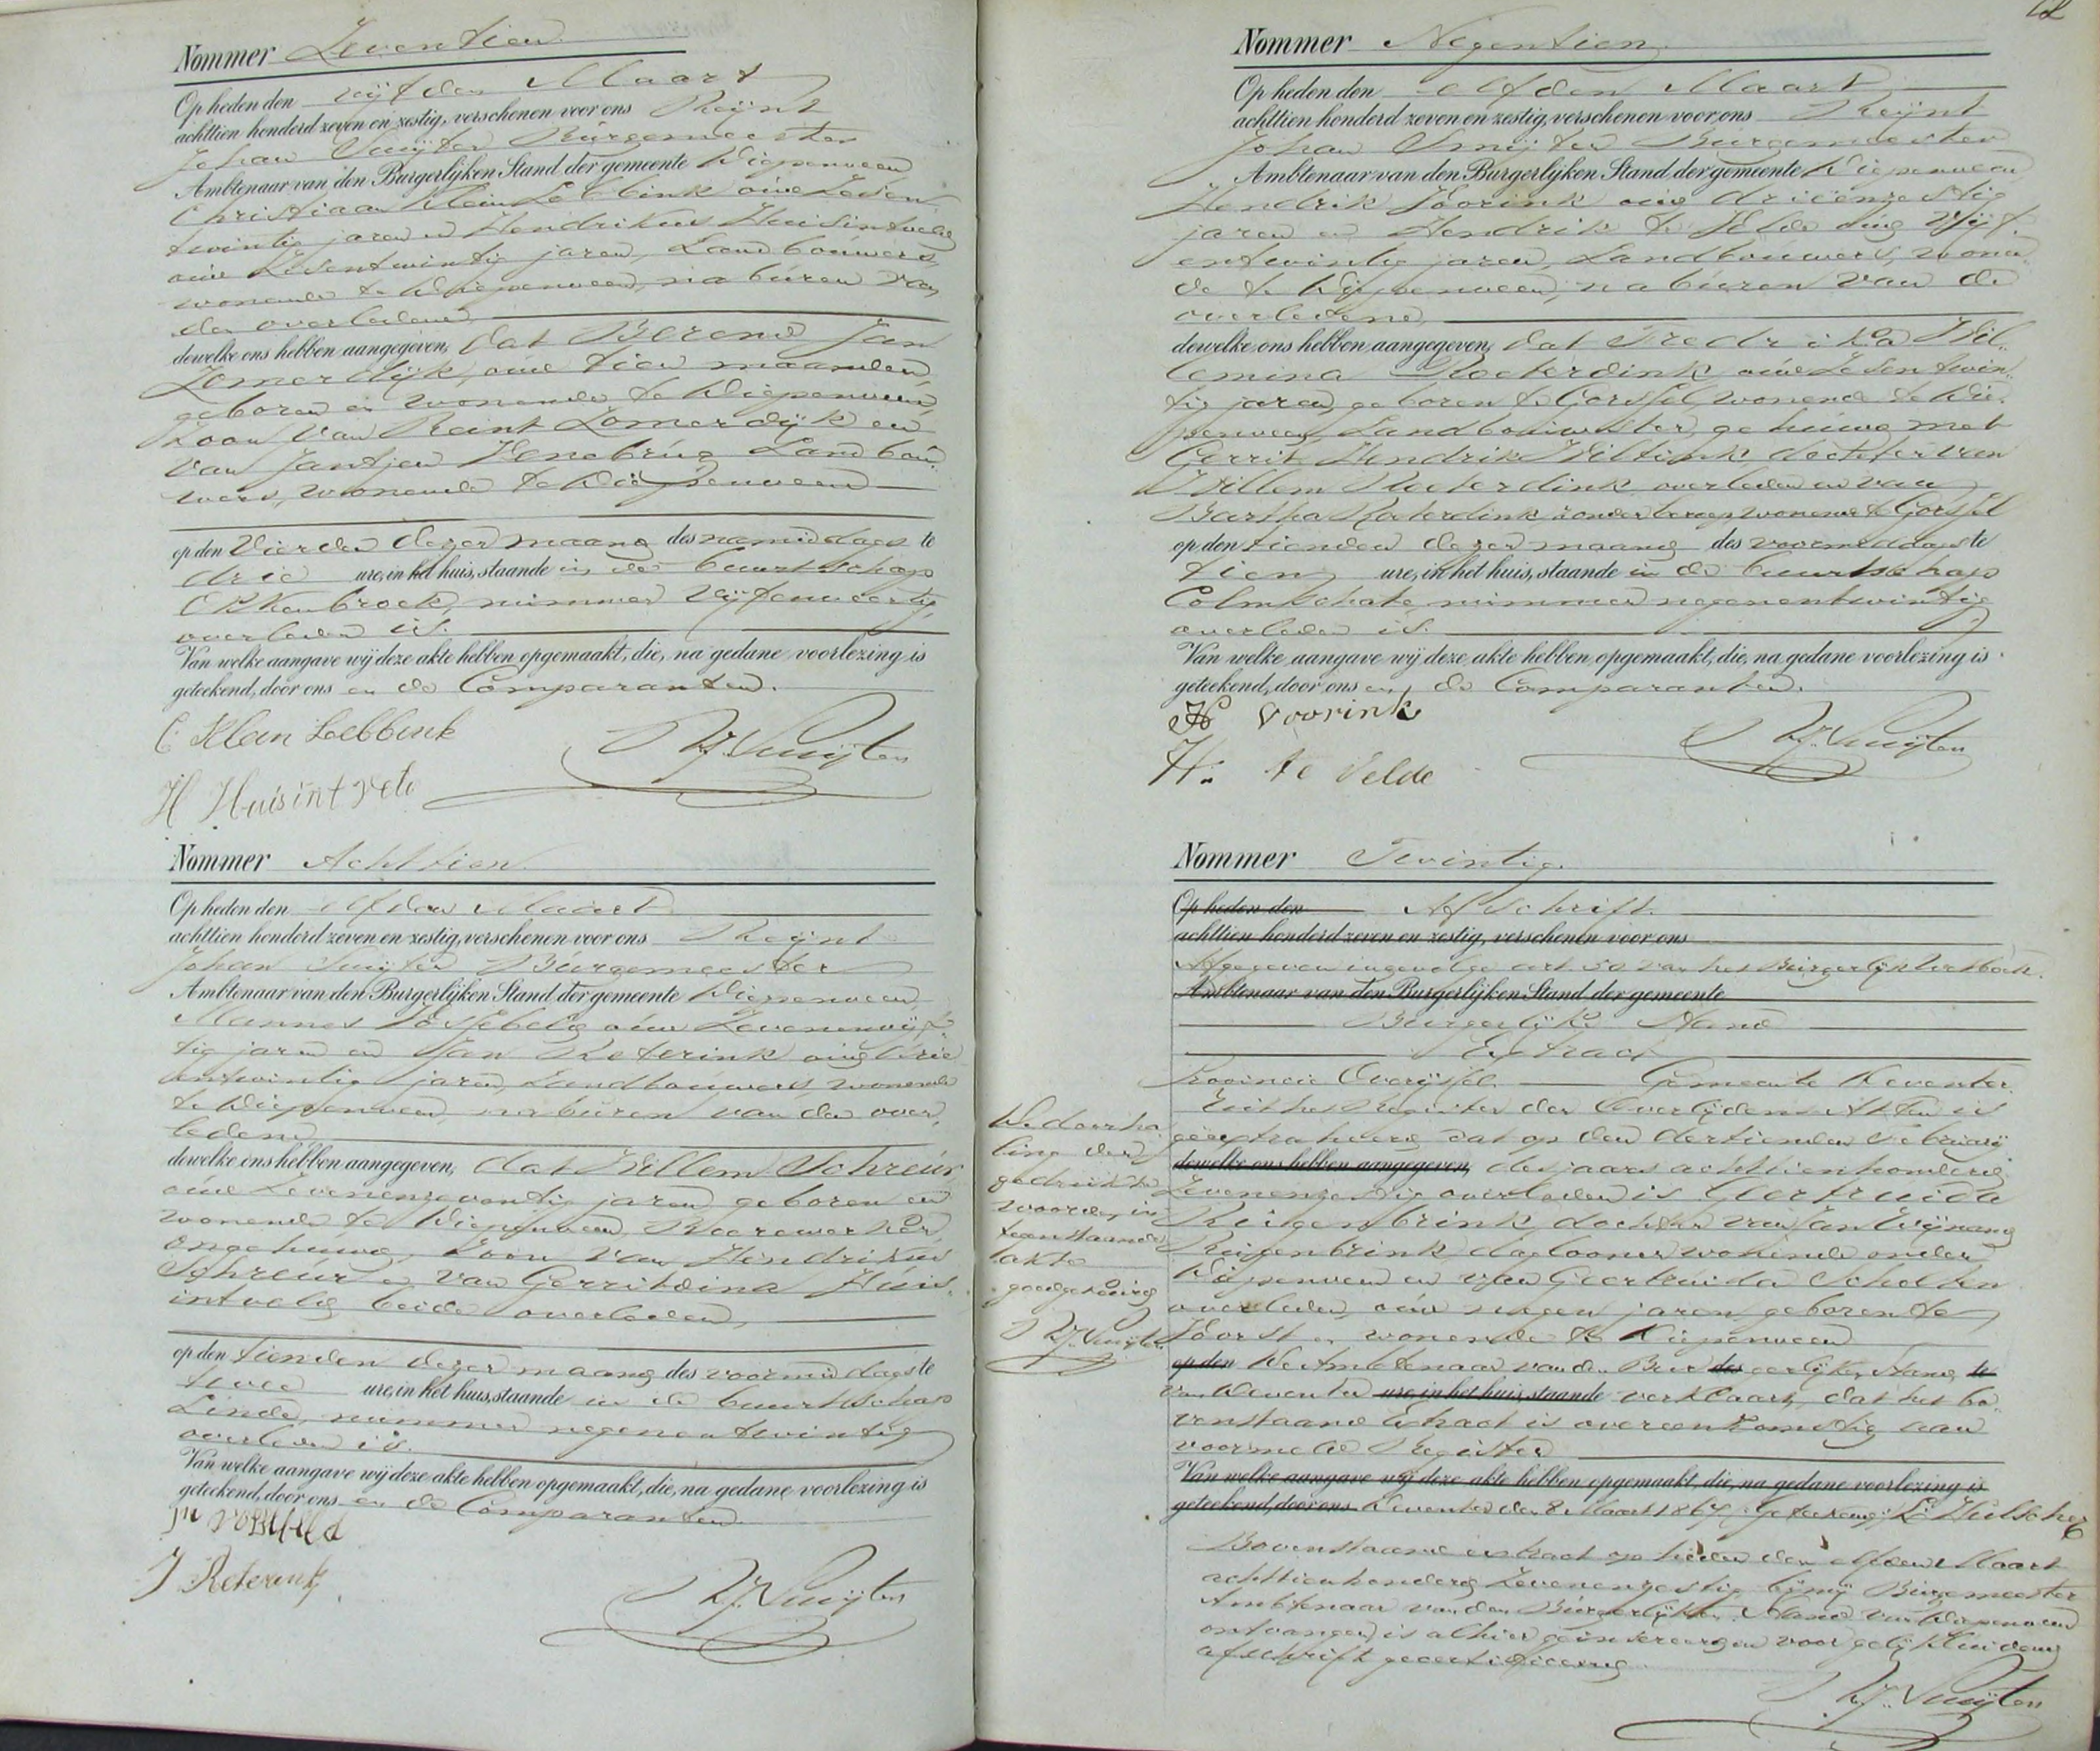 Nommer Zeventien
Op heden den vijfden Maart
achttien honderd zeven en zestig, verschenen voor ons Reijnt
Johan Suijter Burgemeester
Ambtenaar van den Burgerlijken Stand der gemeente Diepenveen
Christiaan Klein Lebbink oud zesen
twintig jaren en Hendrikus Huisintveld
oud zesentwintig jaren, Landbouwers,
wonende te Diepenveen, naburen van
den overledene
dewelke ons hebben aangegeven, dat Berend Jan
Zomerdijk, oud tien maanden,
geboren en wonende te Diepenveen,
zoon van Reint Zomerdijk en
van Jantjen Venebrug Landbou-
wers, wonende te Diepenveen
op den vierden dezer maand des namiddags te
drie ure, in het huis, staande in de buurtschap
Okkenbroek, nummer vijfenveertig
overleden is.
Van welke aangave wij deze akte hebben opgemaakt, die, na gedane voorlezing is
geteekend, door ons en de Comparanten.
C Klein Lebbink
RJ. Suijter
H Huisint veld
Nommer Achttien
Op heden den elfden Maart
achttien honderd zeven en zestig, verschenen voor ons Reijnt
Johan Suijter Burgemeester
Ambtenaar van den Burgerlijken Stand der gemeente Diepenveen
Mannes Vossebeld oud zevenenvijf
tig jaren en Jan Reterink oud drie
entwintig jaren, Landbouwers, wonende
te Diepenveen, naburen van den over
ledene
dewelke ons hebben aangegeven, dat Willem Schreur
oud zevenenzeventig jaren geboren en
wonende te Diepenveen,
ongehuwd, zoon van Hendrikus
Schreur en van Gerritdina Huis-
intveld, beide overleden,
op den tienden dezer maand des voormiddags te
twee ure, in het huis, staande in de buurtschap
Linde, nummer negenentwintig
overleden is.
Van welke aangave wij deze akte hebben opgemaakt, die, na gedane voorlezing is
geteekend, door ons en de Comparanten.
J Reterink
RJ. Suijter
Nommer Negentien
Op heden den elfden Maart
achttien honderd zeven en zestig, verschenen voor ons Reijnt
Johan Suijter Burgemeester
Ambtenaar van den Burgerlijken Stand der gemeente Diepenveen
Hendrik Voorink oud drieënzestig
jaren en Hendrik te Velde oud vijf-
entwintig jaren, Landbouwers, wonen
de te Diepenveen, naburen van de
overledene,
dewelke ons hebben aangegeven, dat Fredrika Wil-
lemina Roeterdink, oud zesentwin-
tig jaren, geboren te Gorssel, wonende te Die-
penveen, Landbouwster, gehuwd met
Gerrit Hendrik Wiltink, dochter van
Willem Roeterdink overleden en van
Bartha Roeterdink zonder beroep, wonende te Gorssel
op den tienden dezer maand des voormiddags te
tien ure, in het huis, staande in de buurtschap
Colmschate nummer negenentwintig
overleden is.
Van welke aangave wij deze akte hebben opgemaakt, die, na gedane voorlezing is
geteekend, door ons en de Comparanten.
H Voorink
RJ. Suijter
H. te Velde
Nommer Twintig.
Op heden den Afschrift.
achttien honderd zeven en zestig, verschenen voor ons
Afgegeven ingevolge art. 50 van het Burgerlijk Wetboek.
Ambtenaar van den Burgerlijken Stand der gemeente
Burgerlijke Stand
Extract
Provincie Overijssel. Gemeente Deventer.
Uit het Register der Overlijdens Akten is
geëxtraheerd dat op den dertienden Februarij
dewelke ons hebben aangegeven, des jaars achttienhonderd
zevenenzestig overleden is Geertruida
Ruigenbrink, dochter van Jan Wijnand
Ruigenbrink daglooner wonende onder
Diepenveen en van Geertruida Scholten
overleden, oud negen jaren geboren te
Voorst en wonende te Diepenveen
op den De Ambtenaar van den Bur des gerlijken Stand te
van Deventer ure, in het huis, staande verklaart, dat het bo-
venstaand Extract is overeenkomstig aan
voormeld Register
Van welke aangave wij deze akte hebben opgemaakt, die, na gedane voorlezing is
geteekend, door ons Deventer den 8 Maart 1867. (Geteekend) Hulscher
Bovenstaand extract op heden den elfden Maart
achttienhonderd zevenenzestig bij mij Burgemeester
Ambtenaar van den Burgerlijken Stand van Diepenveen
ontvangen, is alhier geïnsereerd en voor gelijkluidend
afschrift gecertificeerd
RJ. Suijter
De doorha
ling der
gedrukte
woorden in
tegenstaande
akte
goedgekeurd
RJ. Suijter